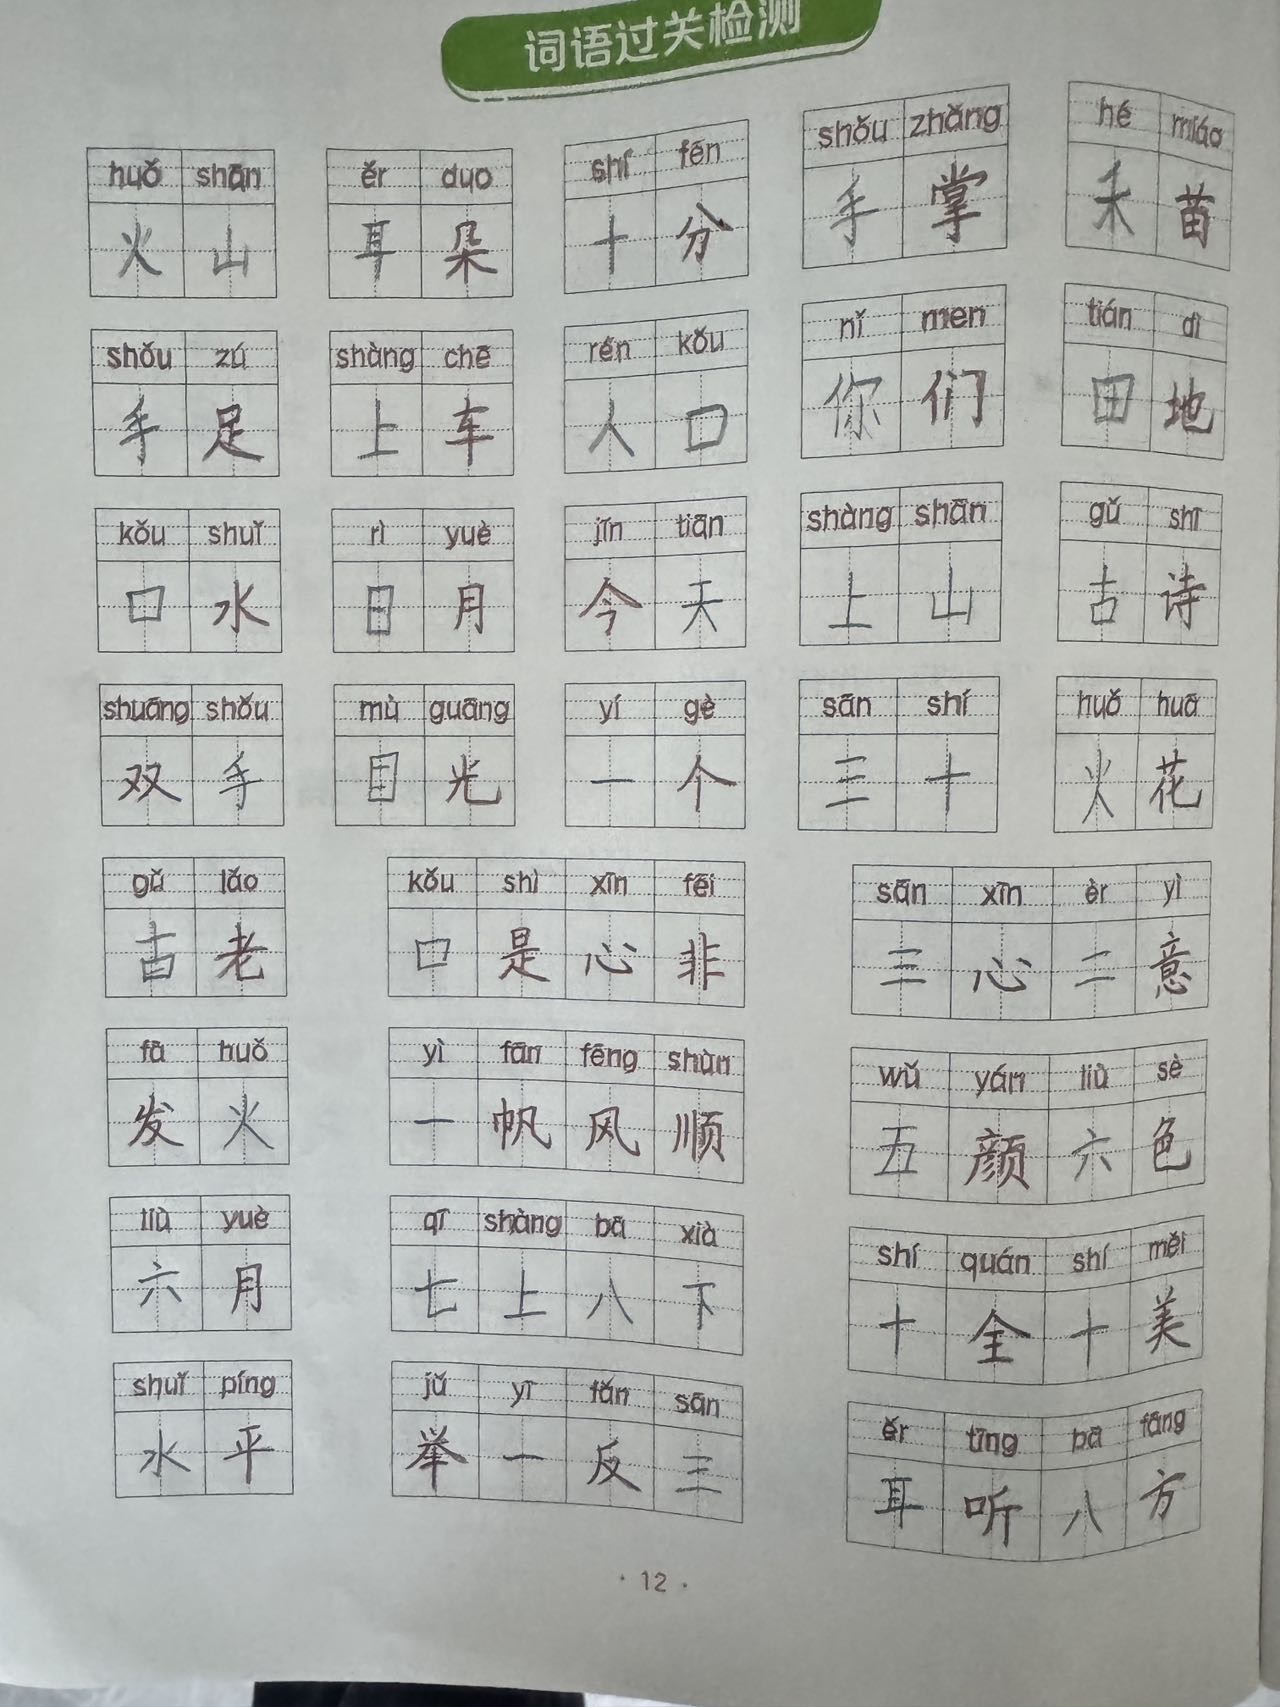 词语过关检测
huǒ shān ěr duo shí fēn shǒu zhǎng hé miáo
火山 耳朵 十分 手掌 禾苗
shǒu zú shàng chē rén kǒu nǐ men tián dì
手足 上车 人口 你们 田地
kǒu shuǐ rì yuè jīn tiān shàng shān gǔ shī
口水 日月 今天 上山 古诗
shuāng shǒu mù guāng yí gè sān shí huǒ huā
双手 目光 一个 三十 火花
gǔ lǎo kǒu shì xīn fēi sān xīn èr yì
古老 口是心非 三心二意
fā huǒ yì fān fēng shùn wǔ yán liù sè
发火 一帆风顺 五颜六色
liù yuè qī shàng bā xià shí quán shí měi
六月 七上八下 十全十美
shuǐ píng jǔ yī fǎn sān ěr tīng bā fāng
水平 举一反三 耳听八方
· 12 ·